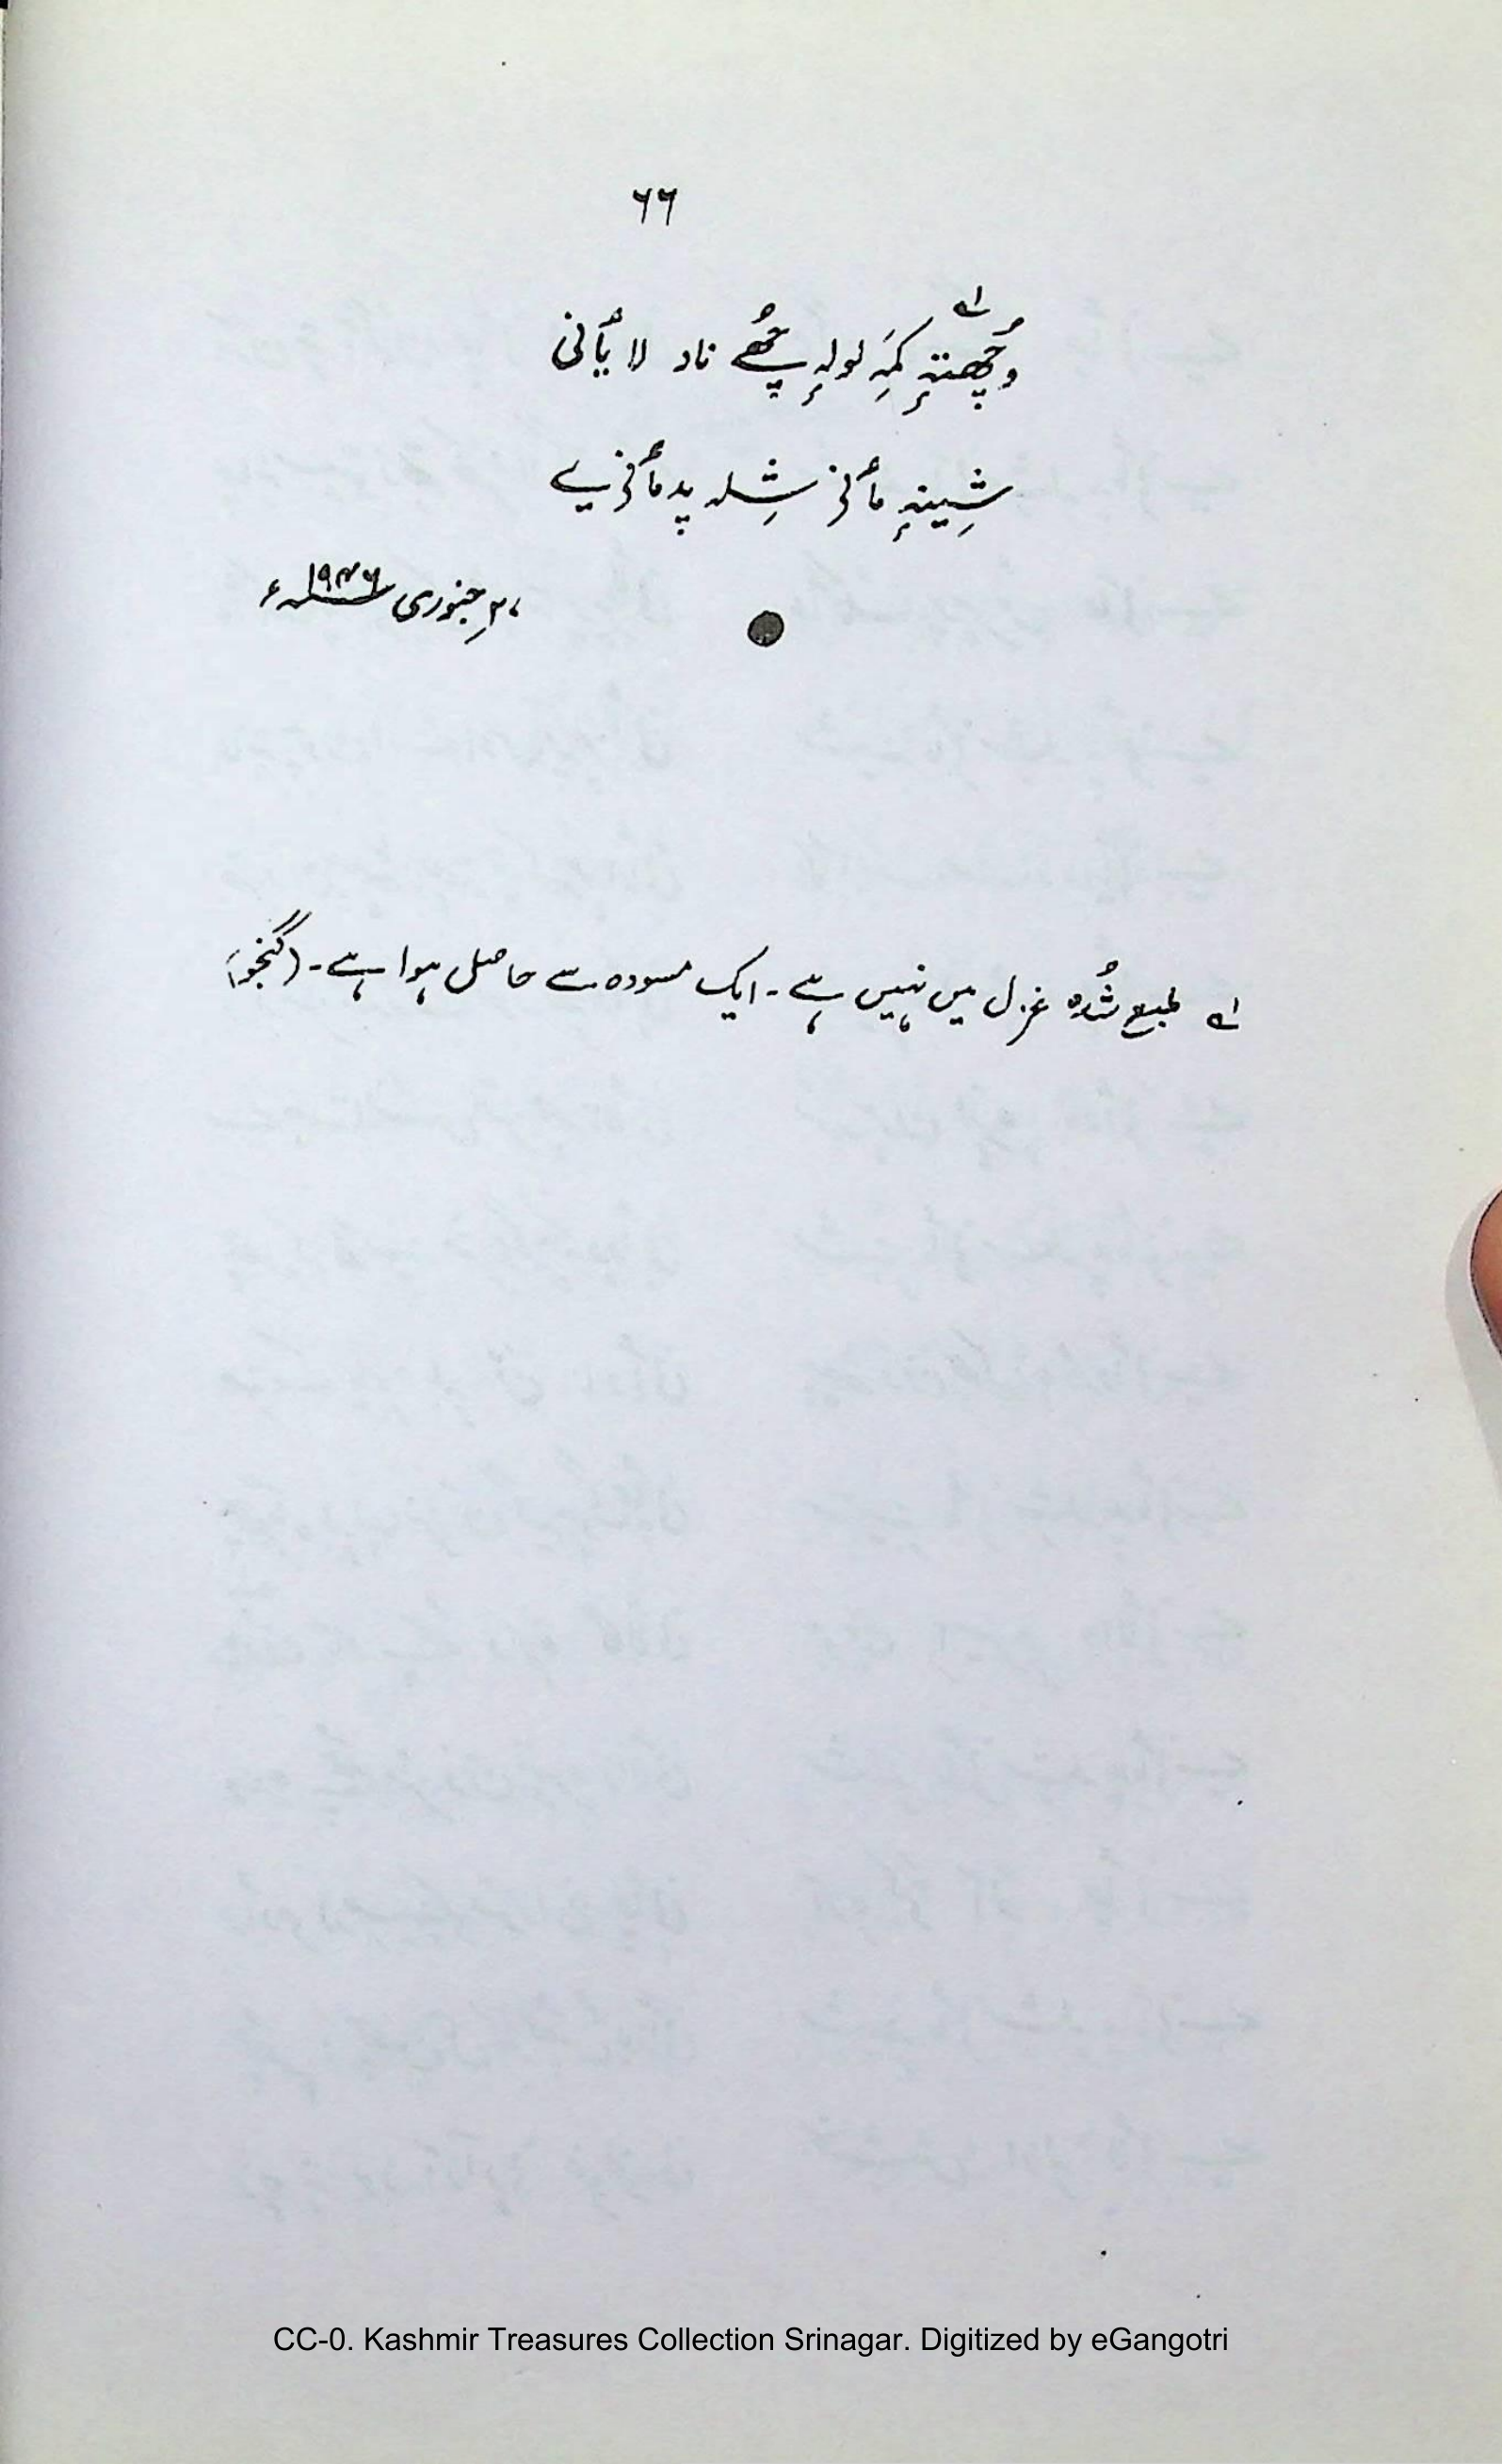 ۶۶
وُچھتہٕ کمَہِ لولہٕ چھُے ناد لایٔانی
شِینہٕ مأنز شِلہ پدمأنزیے
۲۰ جنوری ۱۹۴۶ء
؎۱ طبع شُدہ غزل میں نہیں ہے۔ ایک مسودہ سے حاصل ہوا ہے۔ (گنجو)
CC-0. Kashmir Treasures Collection Srinagar. Digitized by eGangotri